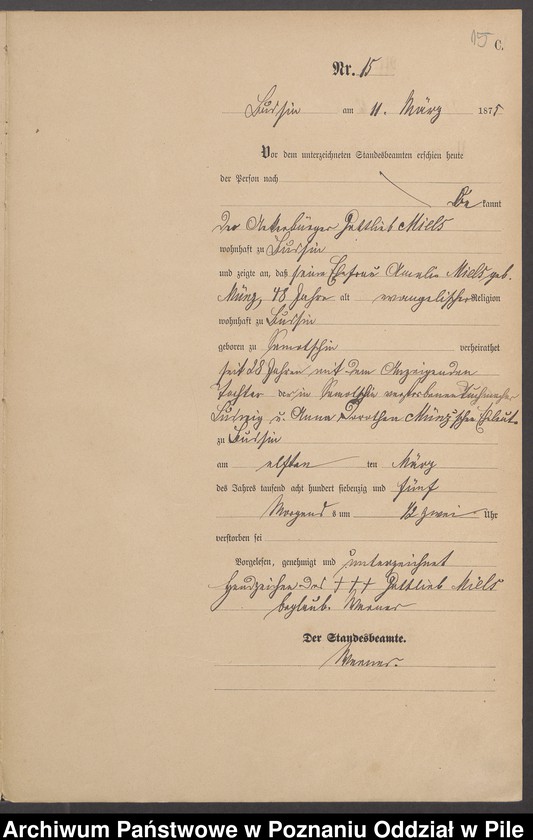 15 C.
Nr. 15
Lussin am 11. März 1875
Vor dem unterzeichneten Standesbeamten erschien heute
der Person nach
Be kannt
Der Ackerbürger Gottlieb Miels
wohnhaft zu Lussin
und zeigte an, daß seine Ehefrau Amalie Miels geb.
Münz, 48 Jahre alt evangelischer Religion
wohnhaft zu Lussin
geboren zu Samotschin verheirathet
seit 28 Jahren mit dem Anzeigenden
Tochter der in Samotschin verstorbenen Tuchmacher
Ludwig u. Anna Dorothea Münz'schen Eheleute
zu Lussin
am elften ten März
des Jahres tausend acht hundert siebenzig und fünf
Morgend s um zwei Uhr
verstorben sei
Vorgelesen, genehmigt und unterzeichnet
Handzeichen des +++ Gottlieb Miels
beglaub. Werner
Der Standesbeamte.
Werner.
Archiwum Państwowe w Poznaniu Oddział w Pile